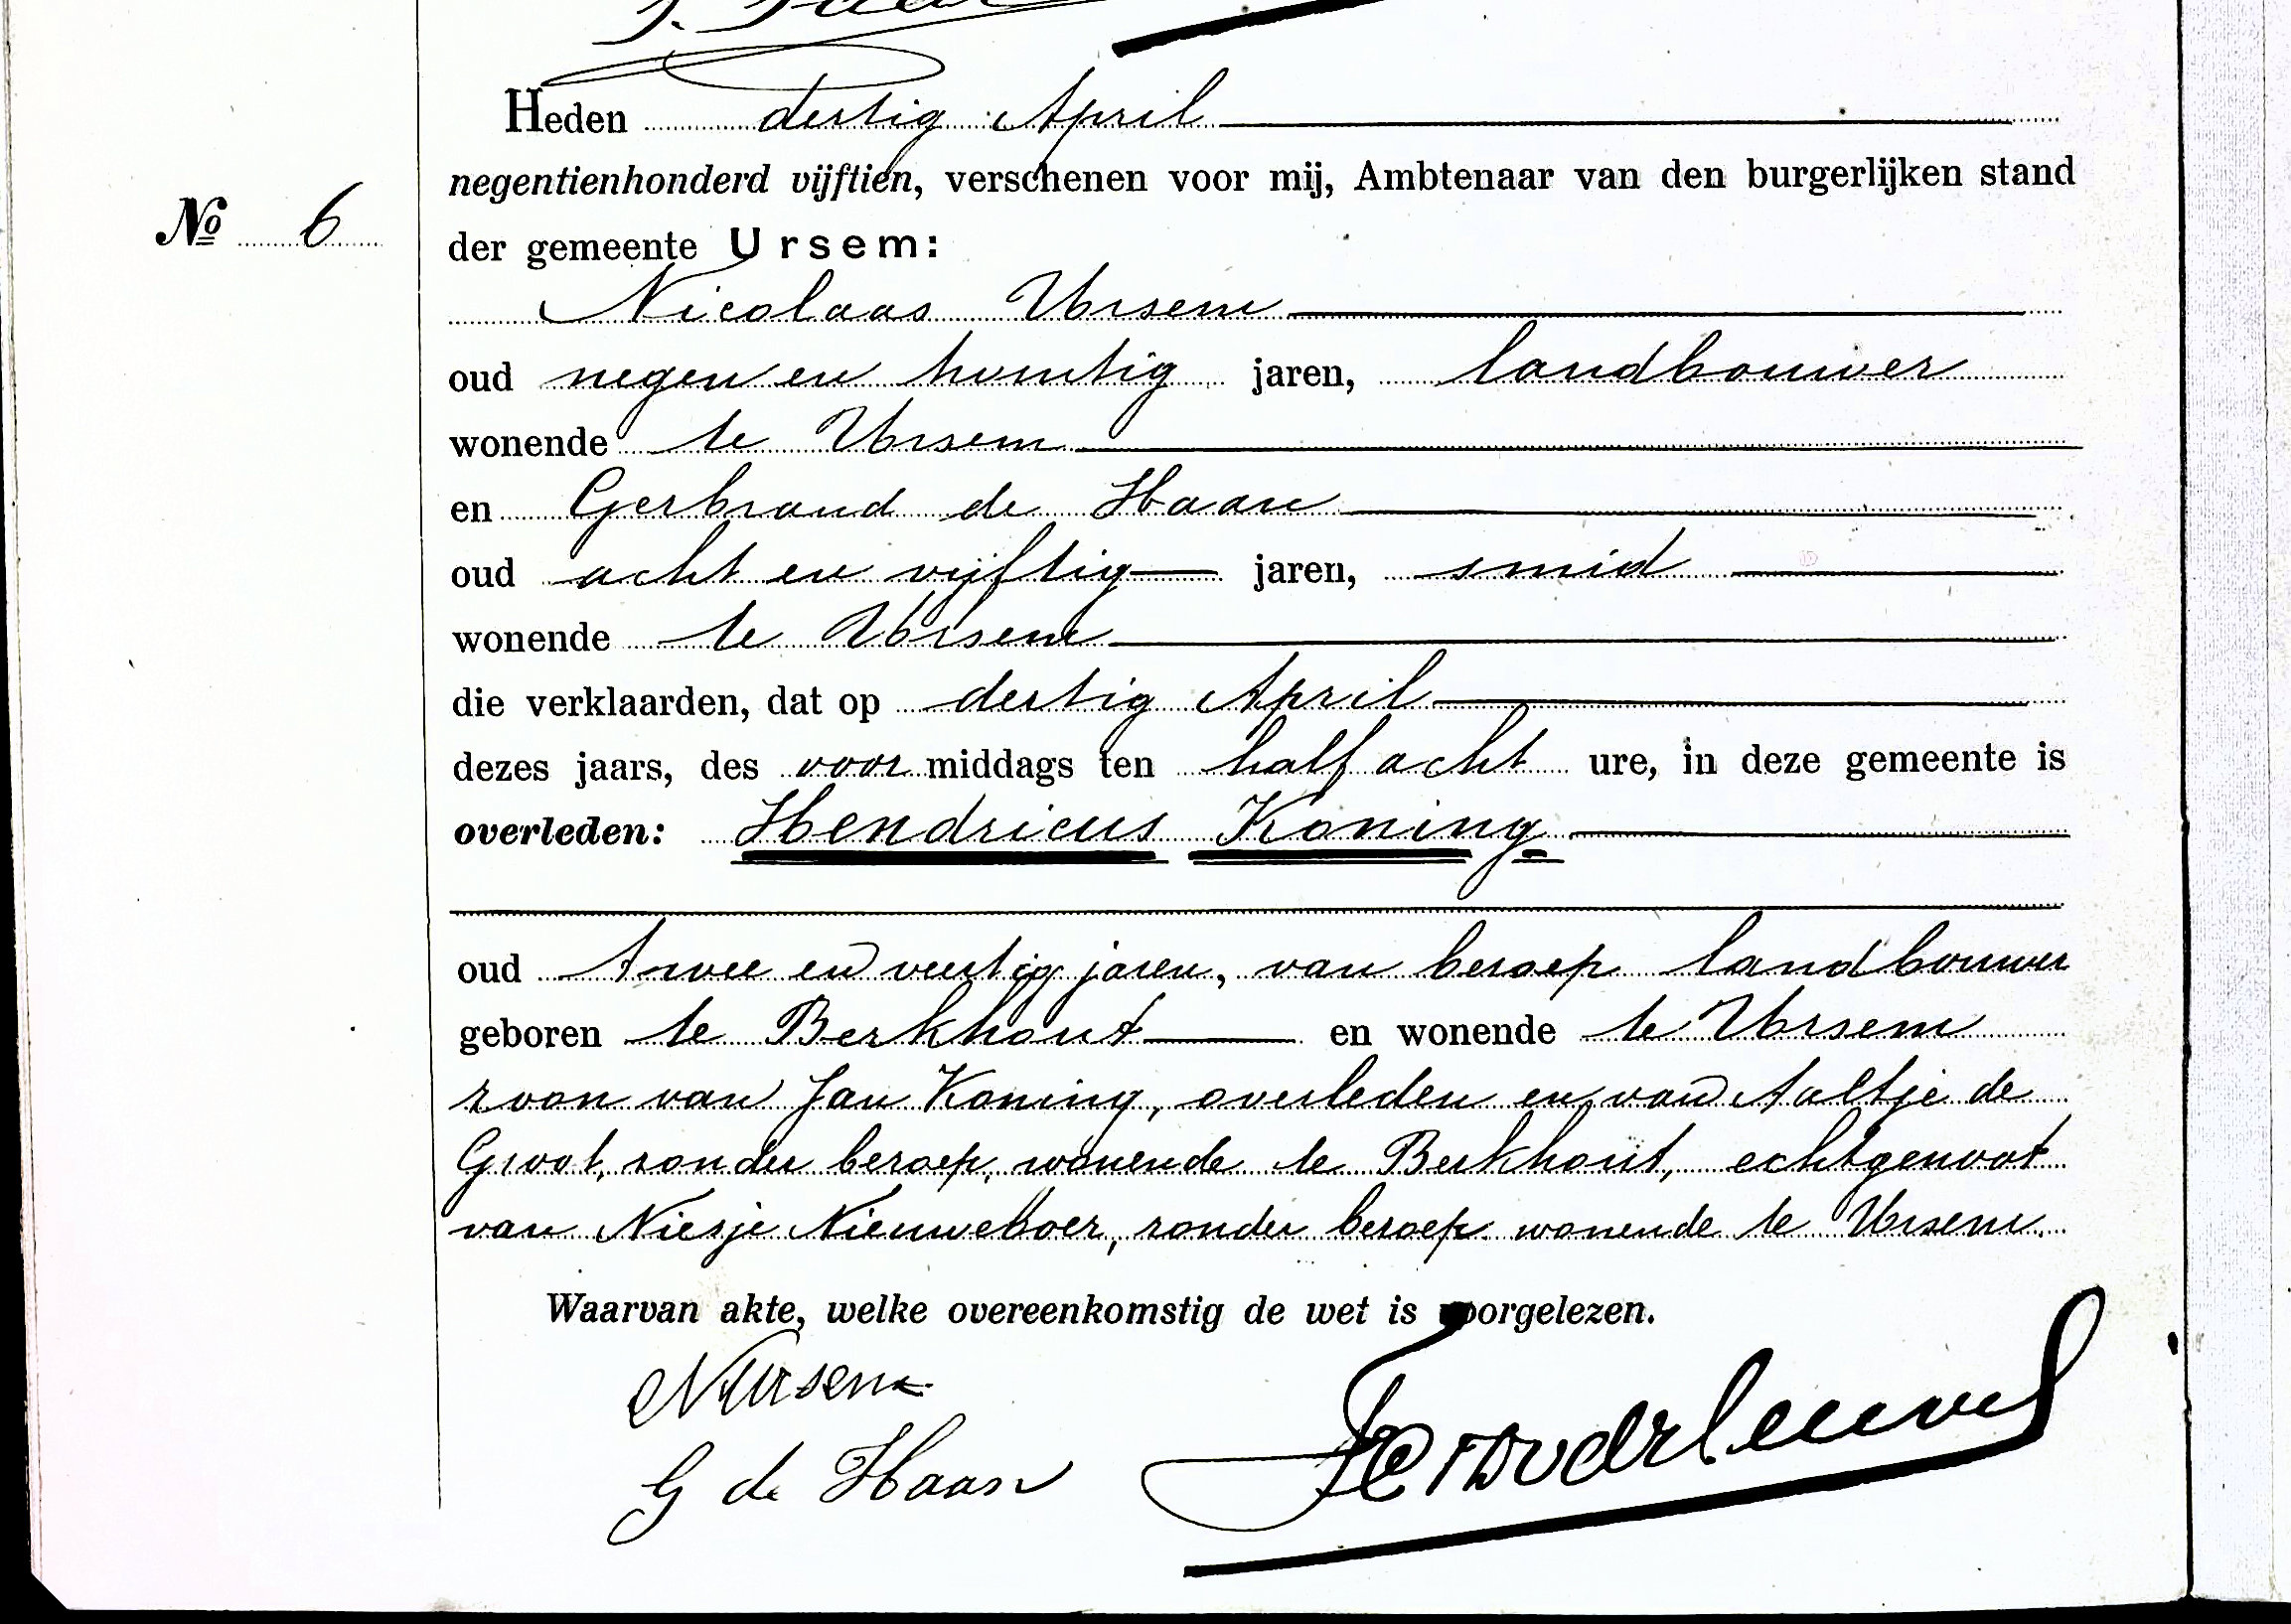 Heden dertig April
negentienhonderd vijftien, verschenen voor mij, Ambtenaar van den burgerlijken stand
No 6
der gemeente Ursem:
Nicolaas Ursem
oud negen en twintig jaren, landbouwer
wonende te Ursem
en Gerbrand de Haan
oud acht en vijftig jaren, smid
wonende te Ursem
die verklaarden, dat op dertig April
dezes jaars, des voormiddags ten half acht ure, in deze gemeente is
overleden: Hendricus Koning
oud twee en veertig jaren, van beroep landbouwer
geboren te Berkhout en wonende te Ursem
zoon van Jan Koning, overleden en van Aaltje de
Groot, zonder beroep, wonende te Berkhout, echtgenoot
van Niesje Nieuweboer, zonder beroep wonende te Ursem.
Waarvan akte, welke overeenkomstig de wet is voorgelezen.
N Ursem
G de Haan